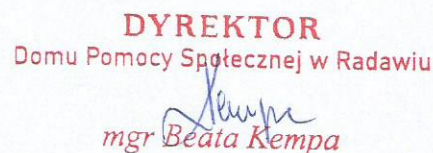 DYREKTOR
Domu Pomocy Społecznej w Radawiu
Kempa
mgr Beata Kempa